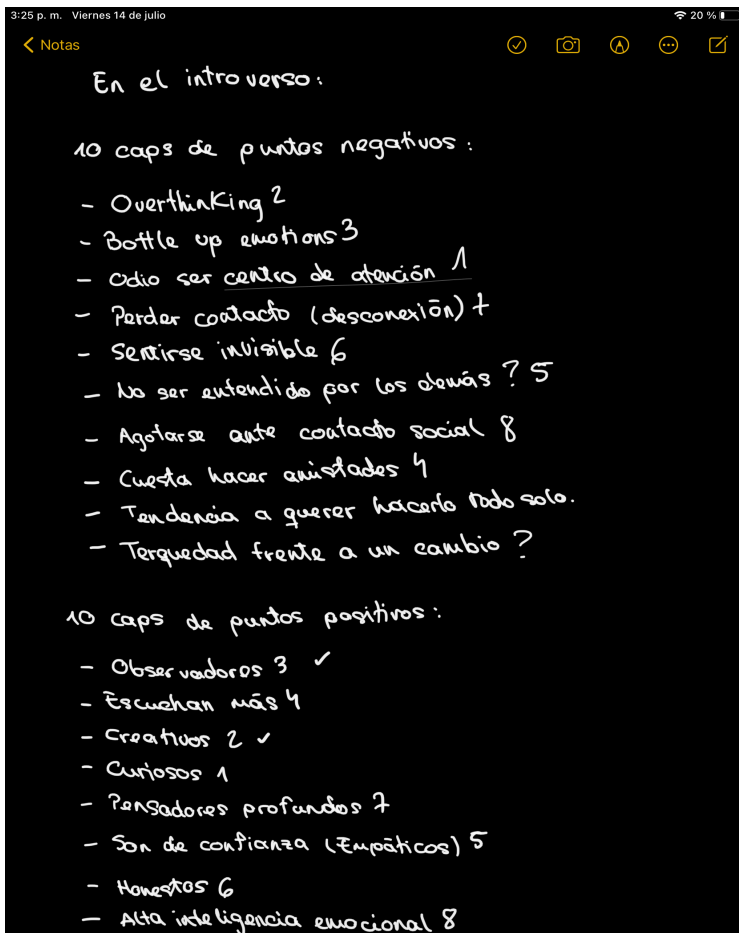 3:25 p. m. Viernes 14 de julio 20 %
Notas
En el introverso:
10 caps de puntos negativos:
- Overthinking 2
- Bottle up emotions 3
- Odio ser centro de atención 1
- Perder contacto (desconexión) 7
- Sentirse invisible 6
- No ser entendido por los demás ? 5
- Agotarse ante contacto social 8
- Cuesta hacer amistades 4
- Tendencia a querer hacerlo todo solo.
- Terquedad frente a un cambio ?
10 caps de puntos positivos:
- Observadores 3 ✓
- Escuchan más 4
- Creativos 2 ✓
- Curiosos 1
- Pensadores profundos 7
- Son de confianza (Empáticos) 5
- Honestos 6
- Alta inteligencia emocional 8